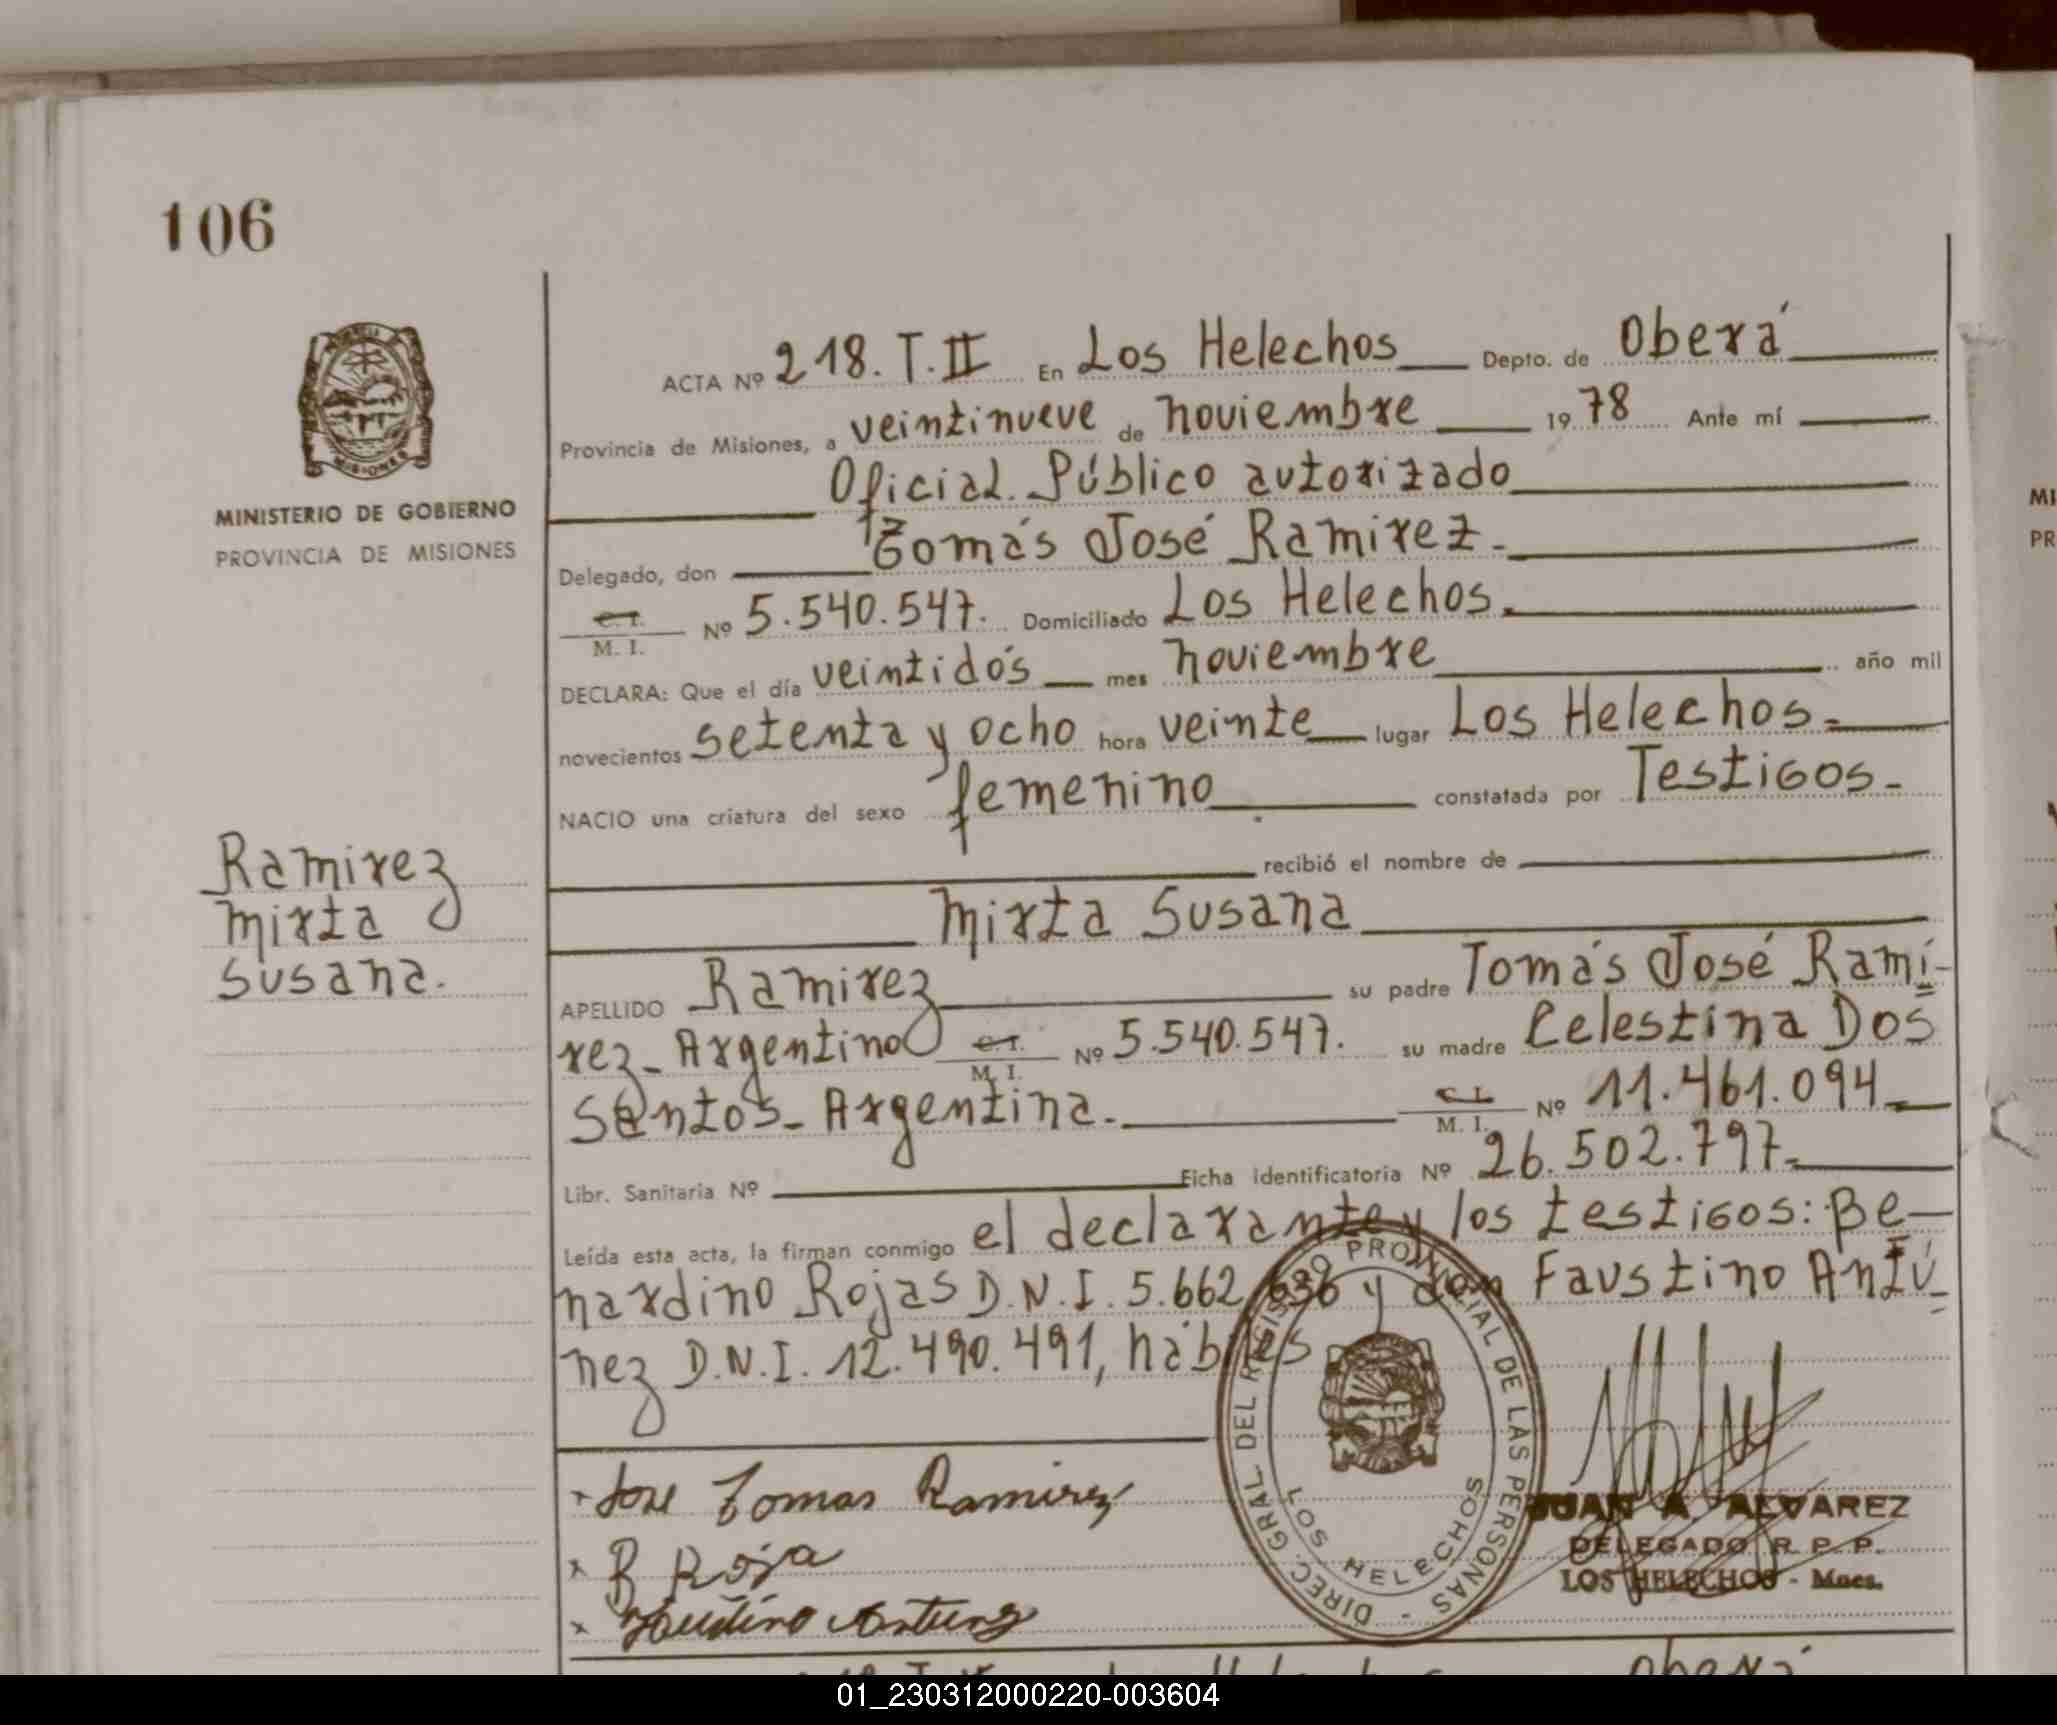 106
MINISTERIO DE GOBIERNO
PROVINCIA DE MISIONES
ACTA Nº 218. T. II En Los Helechos Depto. de Oberá
Provincia de Misiones, a veintinueve de noviembre 1978 Ante mí
Oficial Público autorizado
Delegado, don Tomás José Ramirez.
C. I. M. I. Nº 5.540.547. Domiciliado Los Helechos.
DECLARA: Que el día veintidós mes noviembre año mil
novecientos setenta y ocho hora veinte lugar Los Helechos.
NACIO una criatura del sexo femenino constatada por Testigos.
recibió el nombre de
Mirta Susana
Ramirez
Mirta
Susana.
APELLIDO Ramirez su padre Tomás José Rami-
rez- Argentino C. I. M. I. Nº 5.540.547. su madre Celestina Dos
Santos- Argentina. C. I. M. I. Nº 11.461.094
Libr. Sanitaria Nº Ficha identificatoria Nº 26.502.797-
Leída esta acta, la firman conmigo el declarante y los testigos: Be-
nardino Rojas D.N.I. 5.662.636 y don Faustino Antú-
nez D.N.I. 12.490.491, hábiles
DIREC. GRAL. DEL REGISTRO PROVINCIAL DE LAS PERSONAS -
LOS HELECHOS
x Jose Tomas Ramirez
x B Roja
x Faustino Antunez
JUAN A. ALVAREZ
DELEGADO R. P. P.
LOS HELECHOS - Mnes.
MISIONES
MI
PR
01_230312000220-003604